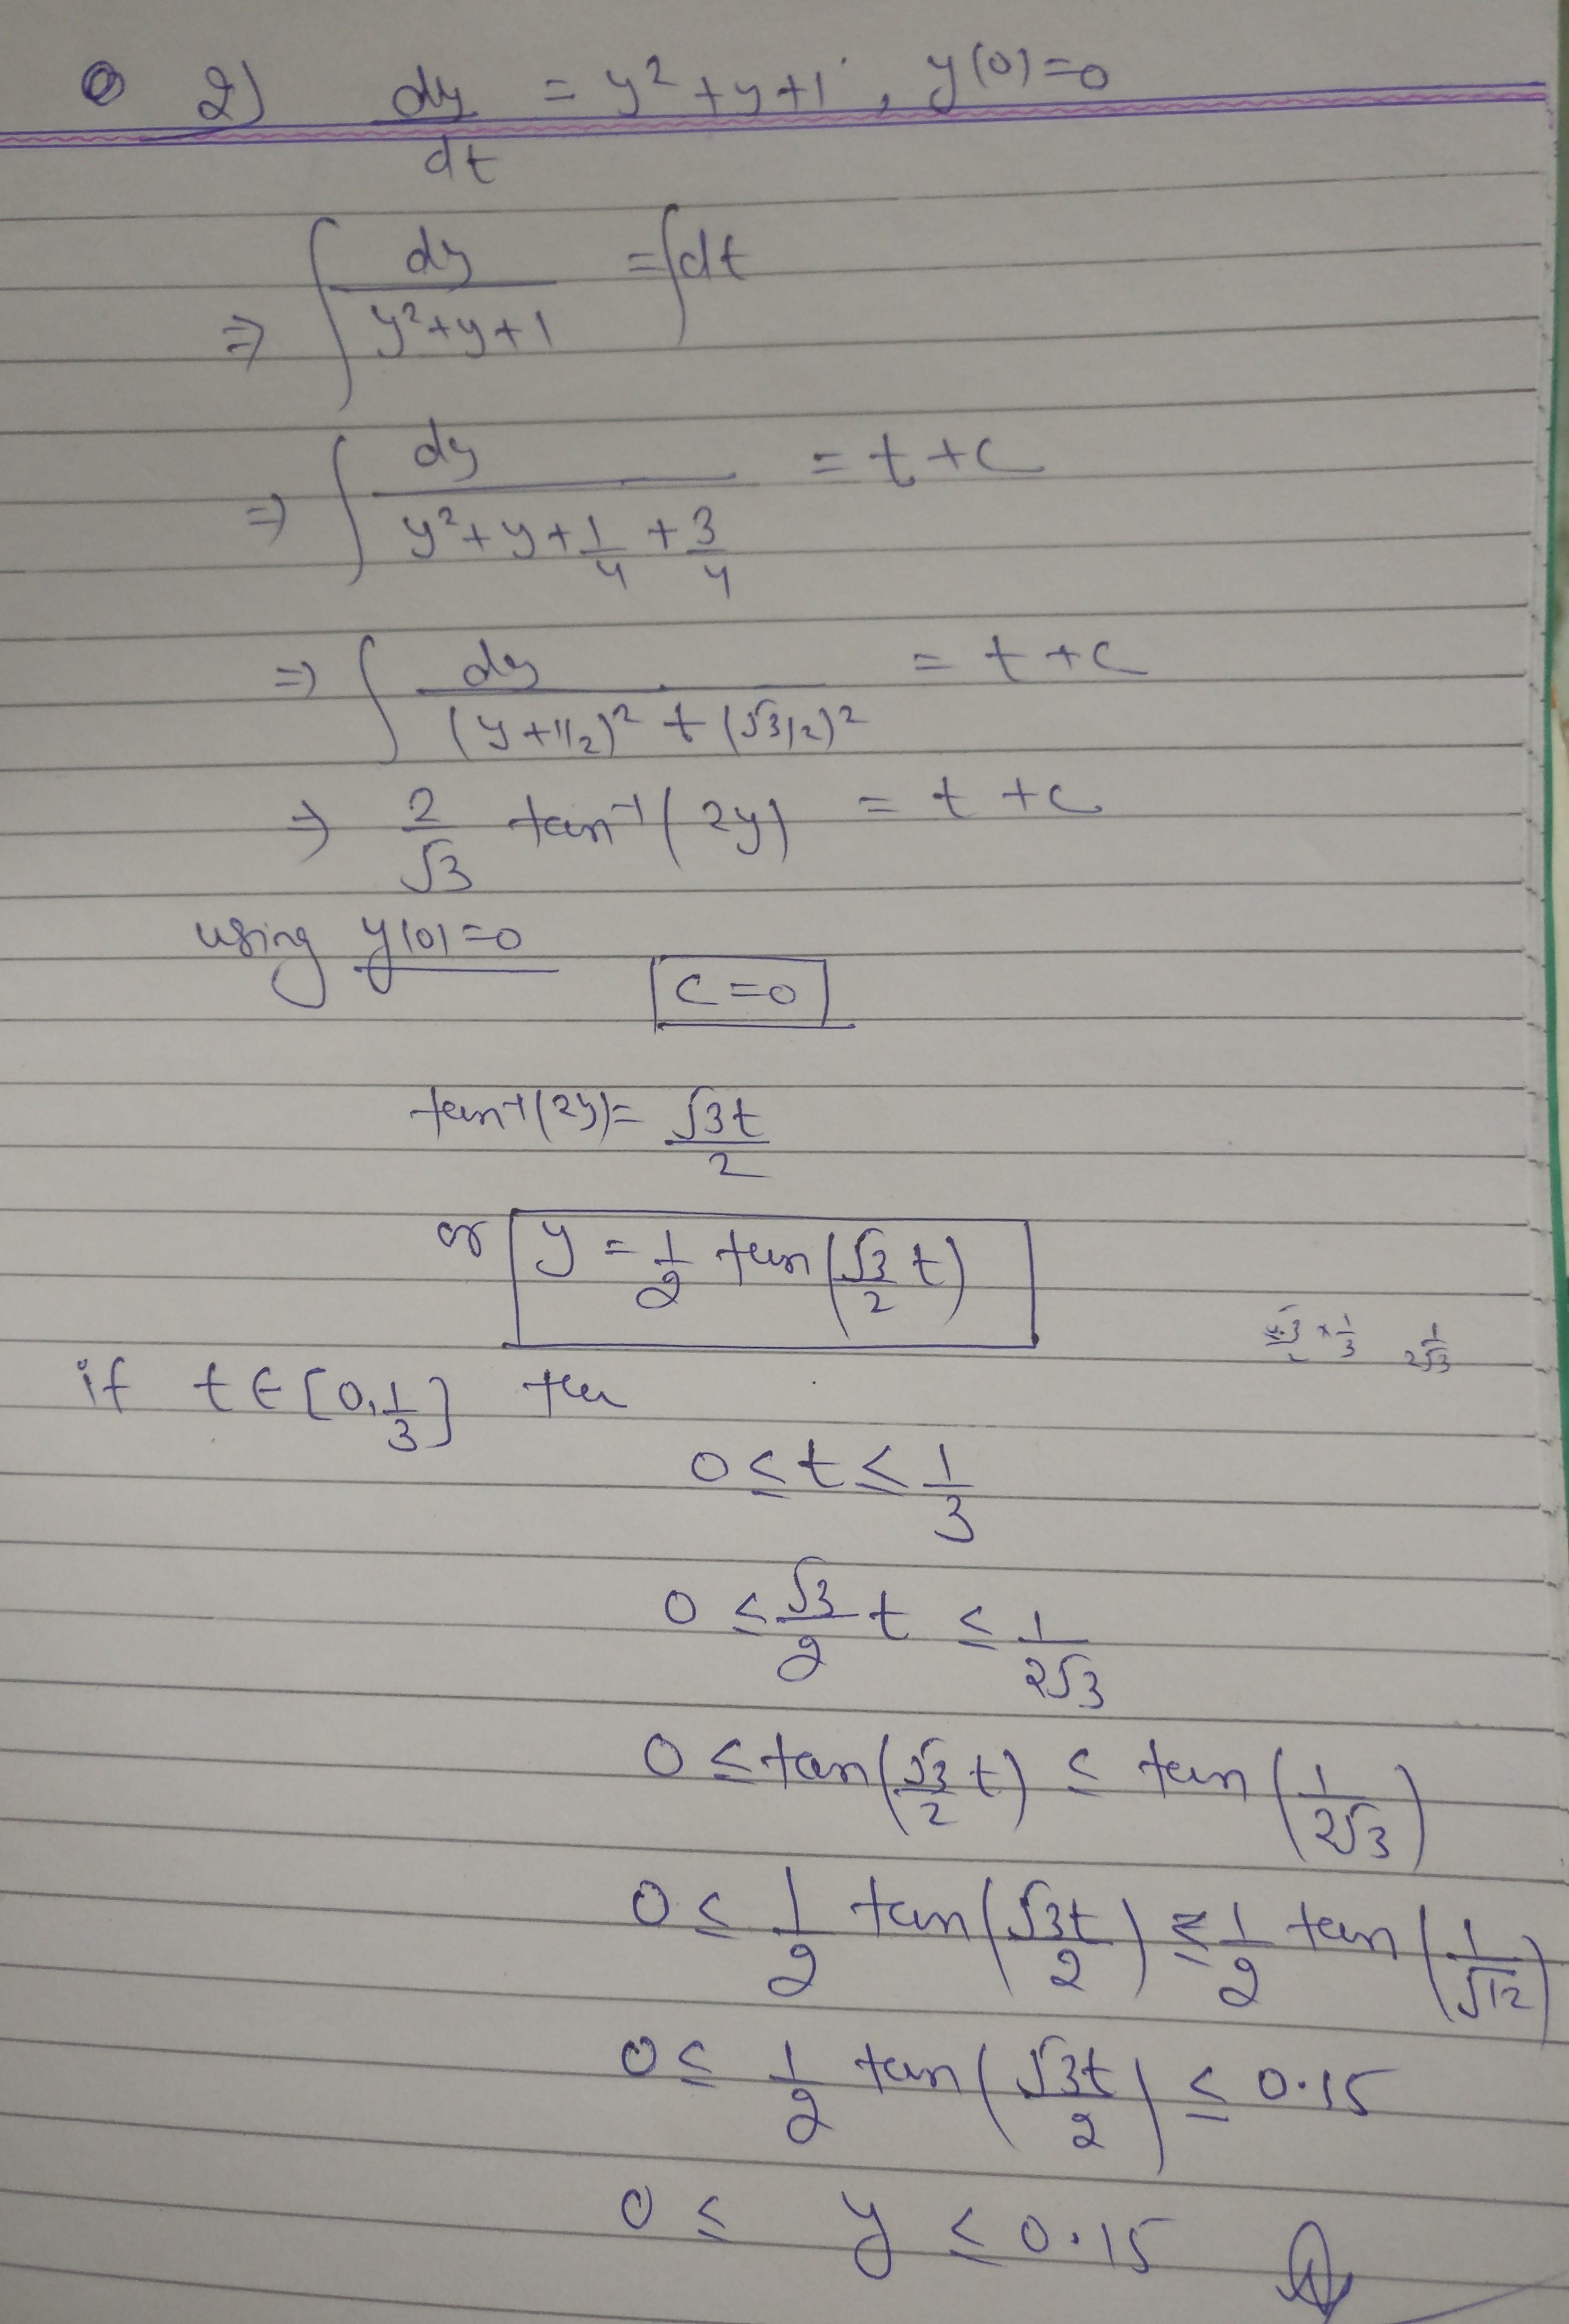 2) dy/dt = y² + y + 1, y(0)=0
⇒ ∫ dy/(y²+y+1) = ∫dt
⇒ ∫ dy/(y²+y+1/4+3/4) = t+c
⇒ ∫ dy/((y+1/2)²+(√3/2)²) = t+c
⇒ 2/√3 tan⁻¹(2y) = t+c
using y(0)=0
c=0
tan⁻¹(2y) = √3t/2
or y = 1/2 tan(√3/2 t)
1/2√3
if t∈[0,1/3] then
0 ≤ t ≤ 1/3
0 ≤ √3/2 t ≤ 1/2√3
0 ≤ tan(√3/2 t) ≤ tan(1/2√3)
0 ≤ 1/2 tan(√3t/2) ≤ 1/2 tan(1/√12)
0 ≤ 1/2 tan(√3t/2) ≤ 0.15
0 ≤ y ≤ 0.15